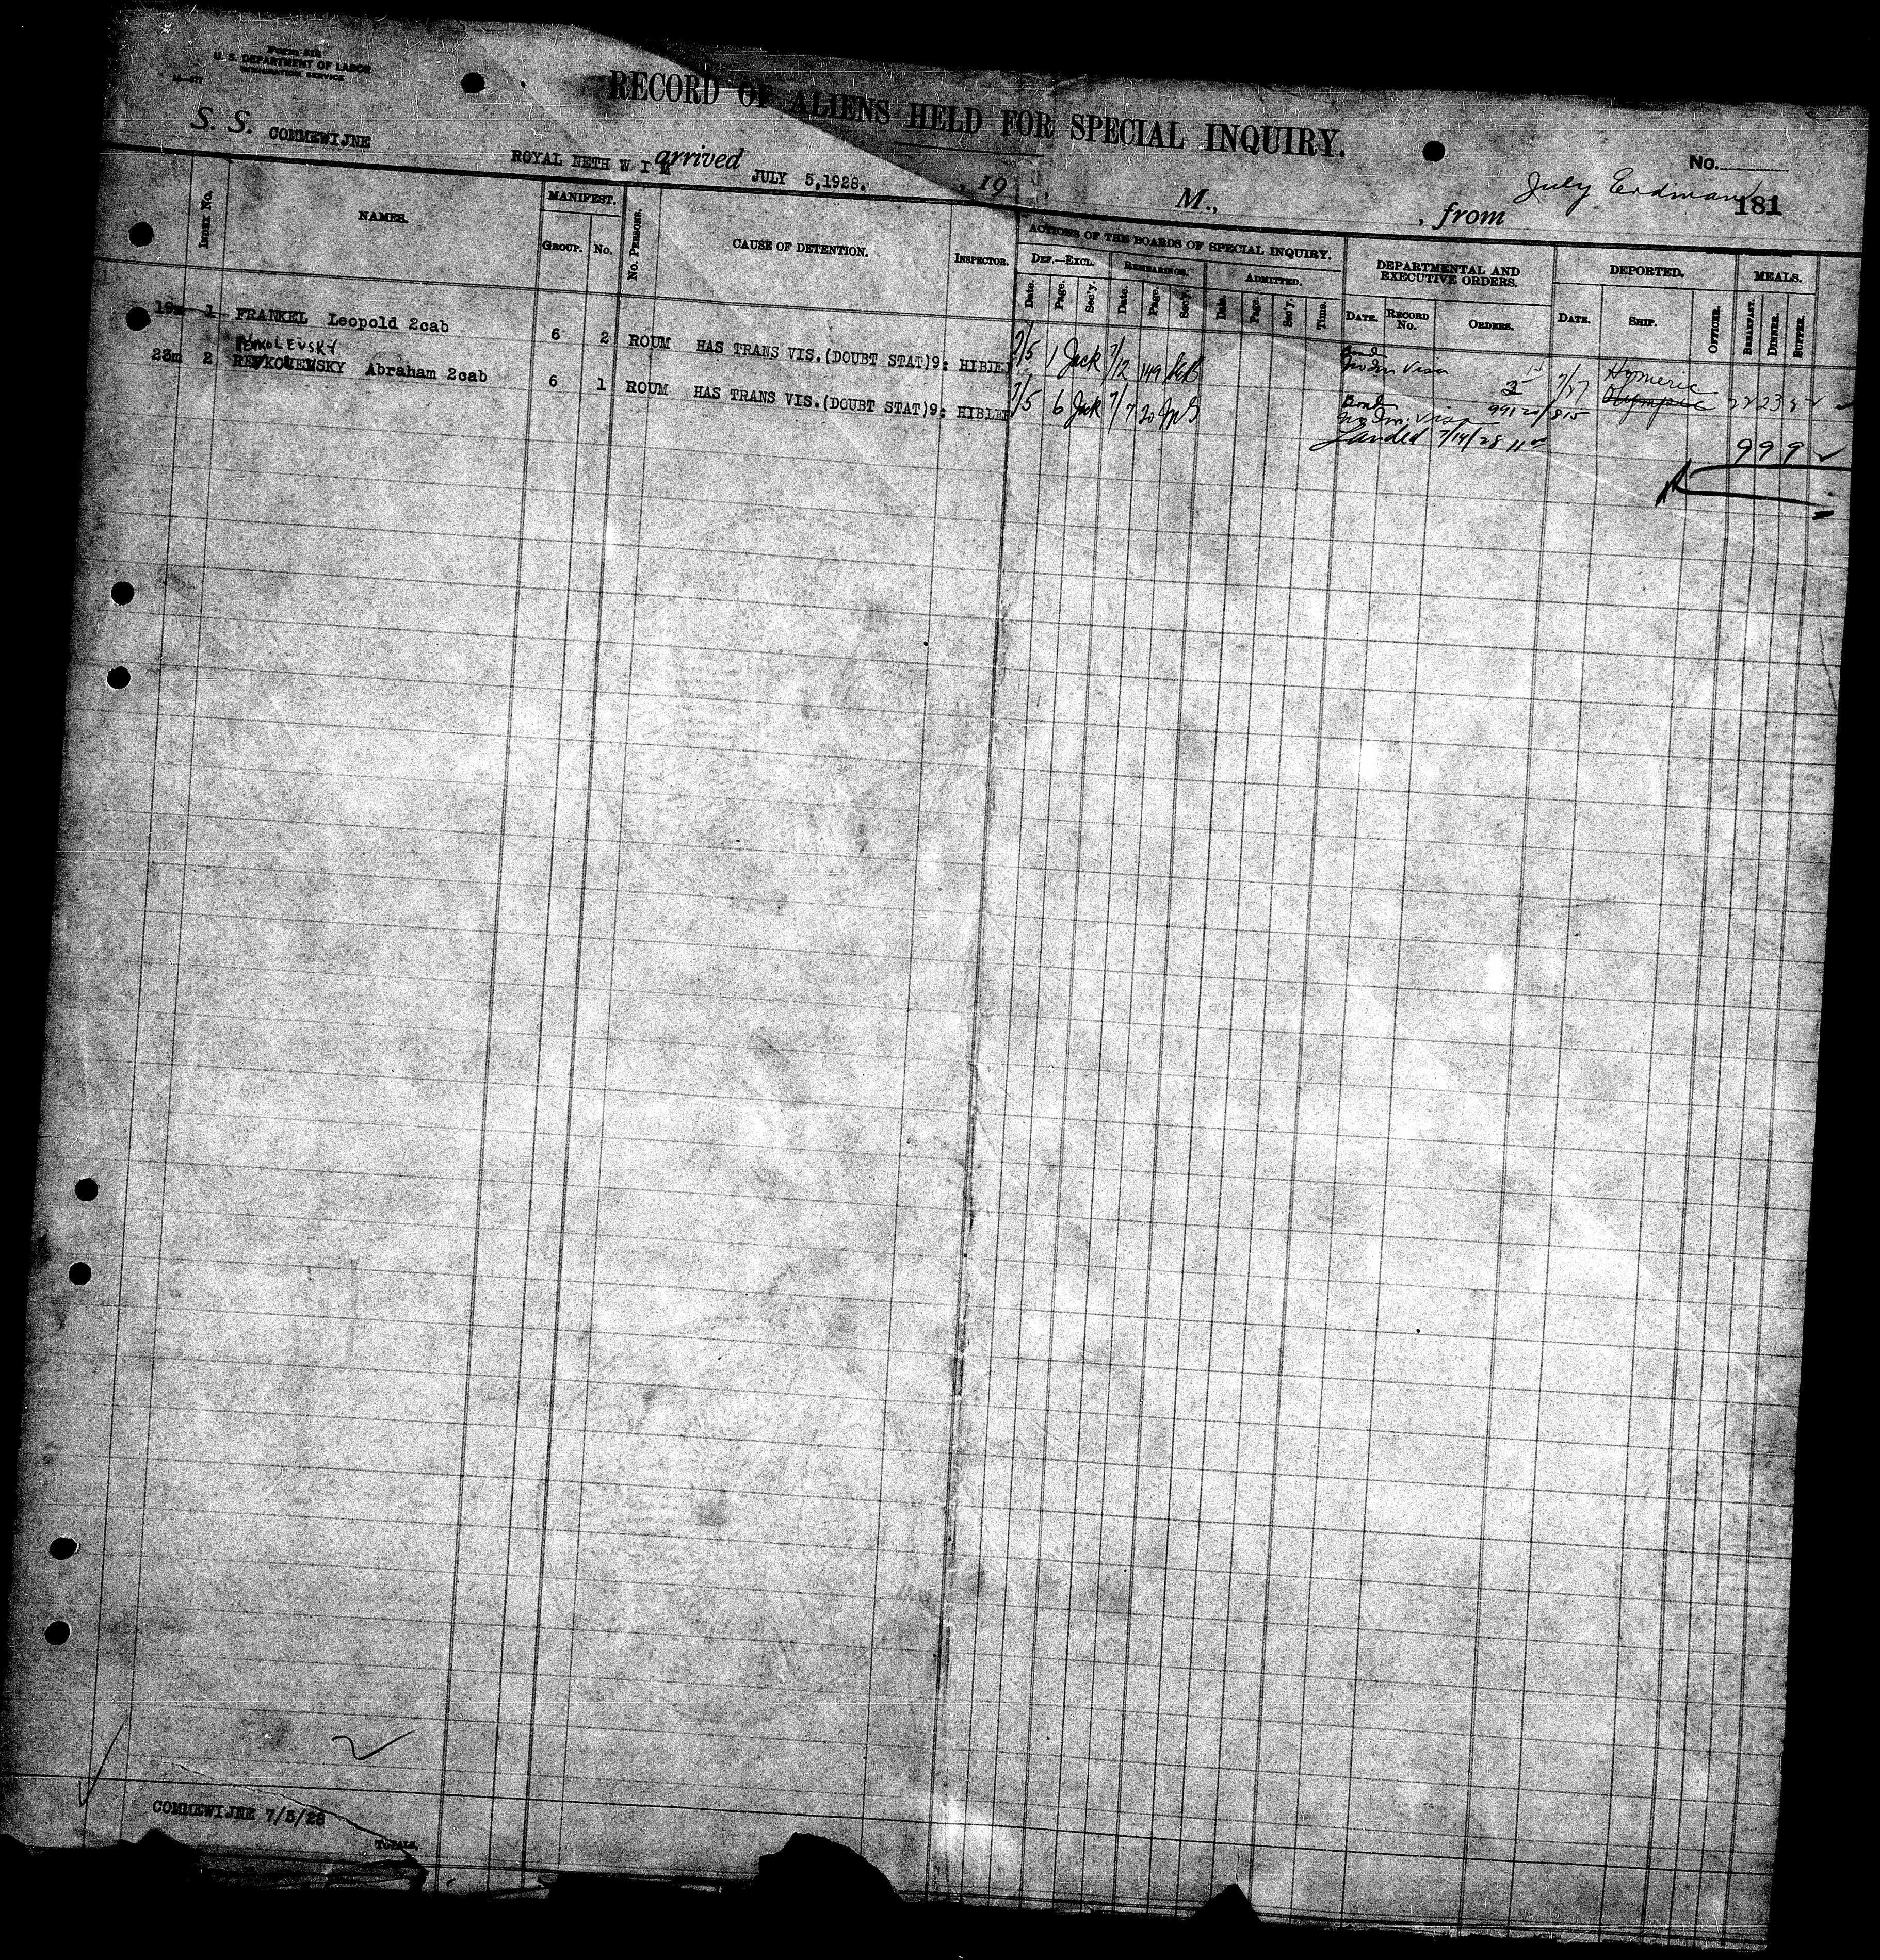 Form 518
U. S. DEPARTMENT OF LABOR
IMMIGRATION SERVICE
RECORD OF ALIENS HELD FOR SPECIAL INQUIRY.
No.
S. S. COMMEWIJNE
ROYAL NETH W I M arrived JULY 5,1928. , 19 , M., , from
181
INDEX No. NAMES. MANIFEST. GROUP. No. No. PERSONS. CAUSE OF DETENTION. INSPECTOR.
ACTIONS OF THE BOARDS OF SPECIAL INQUIRY. DEPARTMENTAL AND EXECUTIVE ORDERS. DEPORTED. MEALS.
DEF.—EXCL. REHEARINGS. ADMITTED.
Date. Page. Sec'y. Date. Page. Sec'y. Date. Page. Sec'y. Time. DATE. RECORD No. ORDERS. DATE. SHIP. OFFICER. BREAKFAST. DINNER. SUPPER.
Bond
19m 1 FRANKEL Leopold 2cab 6 2 ROUM HAS TRANS VIS.(DOUBT STAT)9: 7/5 1 Jack 7/12 149 No Im Visa 7/27 Olympic
Bond
23m 2 Abraham 2cab 6 1 ROUM HAS TRANS VIS.(DOUBT STAT)9: HIBLER 7/5 6 Jack 7/7 20 No Im. Visa
Landed 7/14/28
9 9 9
COMMEWIJNE 7/5/28
TOTALS.